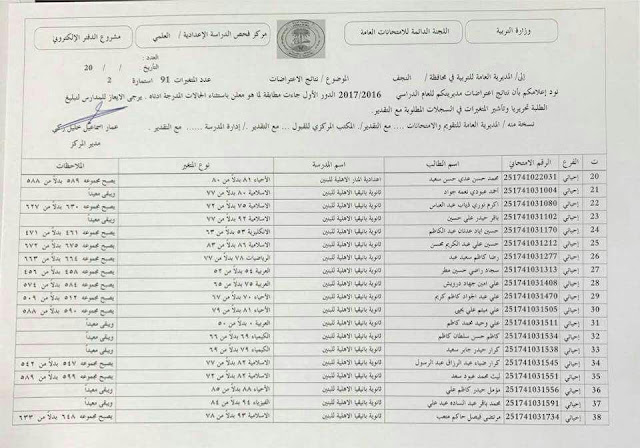 وزارة التربية
اللجنة الدائمة للامتحانات العامة
مركز فحص الدراسة الإعدادية / العلمي
مشروع الدفتر الإلكتروني
العدد :
التاريخ / / 20
إلى/ المديرية العامة للتربية في محافظة / النجف الموضوع / نتائج الاعتراضات عدد المتغيرات 91 استمارة 2
نود إعلامكم بأن نتائج اعتراضات مديريتكم للعام الدراسي 2017/2016 الدور الأول جاءت مطابقة لما هو معلن باستثناء الحالات المدرجة ادناه . يرجى الايعاز للمدارس لتبليغ
الطلبة تحريريا وتأشير المتغيرات في السجلات المطلوبة مع التقدير.
نسخة منه / المديرية العامة للتقويم والامتحانات .... مع التقدير/. المكتب المركزي للقبول ... مع التقدير ./ إدارة المدرسة ..... مع التقدير .
عمار اسماعيل خليل
مدير المركز
ت الفرع الرقم الامتحاني اسم الطالب اسم المدرسة نوع المتغير الملاحظات
20 إحيائي 251741022031 محمد حسن عدي حسن سعيد اعدادية المنار الاهلية للبنين الأحياء ٨١ بدلاً من ٨٠ يصبح مجموعه ٥٨٩ بدلاً من ٥٨٨
21 إحيائي 251741031004 احمد عبودي نعمه جواد ثانوية بانيقيا الاهلية للبنين الاسلامية ٨٠ بدلاً من ٧٧ ويبقى معيداً
22 إحيائي 251741031080 اكرم نوري ذياب عبد العباس ثانوية بانيقيا الاهلية للبنين الاسلامية ٧٥ بدلاً من ٧٢ يصبح مجموعه ٦٣٠ بدلاً من ٦٢٧
23 إحيائي 251741031102 باقر حيدر علي حسين ثانوية بانيقيا الاهلية للبنين الاسلامية ٩٢ بدلاً من ٧٧ ويبقى معيداً
24 إحيائي 251741031170 حسين اياد عدنان عبد الكاظم ثانوية بانيقيا الاهلية للبنين الانكليزية ٥٣ بدلاً من ٦٣ يصبح مجموعه ٤٦١ بدلاً من ٤٧١
25 إحيائي 251741031212 حسين علي عبد الكريم محسن ثانوية بانيقيا الاهلية للبنين الاسلامية ٨٦ بدلاً من ٨٣ يصبح مجموعه ٦٧٥ بدلاً من ٦٧٢
26 إحيائي 251741031277 رضا كاظم سعيد عبد ثانوية بانيقيا الاهلية للبنين الرياضيات ٧٨ بدلاً من ٧٧ يصبح مجموعه ٦٦٤ بدلاً من ٦٦٣
27 إحيائي 251741031313 سجاد راضي حسين مطر ثانوية بانيقيا الاهلية للبنين العربية ٥٤ بدلاً من ٥٢ يصبح مجموعه ٤٥٨ بدلاً من ٤٥٦
28 إحيائي 251741031408 علي امين جهاد درويش ثانوية بانيقيا الاهلية للبنين الاسلامية ٨٧ بدلاً من ٧٧ يصبح مجموعه ٥٨٤ بدلاً من ٥٧٤
29 إحيائي 251741031470 علي عبد الجواد كاظم كريم ثانوية بانيقيا الاهلية للبنين الأحياء ٧٠ بدلاً من ٦٧ يصبح مجموعه ٥١٢ بدلاً من ٥٠٩
30 إحيائي 251741031505 علي ميثم علي يحيى ثانوية بانيقيا الاهلية للبنين الأحياء ٨١ بدلاً من ٧٩ يصبح مجموعه ٥٩٠ بدلاً من ٥٨٨
31 إحيائي 251741031511 علي وحيد محمد كاظم ثانوية بانيقيا الاهلية للبنين العربية ٠ بدلاً من ٥٠ ويبقى معيداً
32 إحيائي 251741031534 كاظم حسن سلطان كاظم ثانوية بانيقيا الاهلية للبنين الكيمياء ٦٩ بدلاً من ٦٦ ويبقى معيداً
33 إحيائي 251741031538 كرار حيدر جابر سعيد ثانوية بانيقيا الاهلية للبنين الكيمياء ٧٩ بدلاً من ٦٩ ويبقى معيداً
34 إحيائي 251741031545 كرار ضياء عبد الرزاق عبد الرسول ثانوية بانيقيا الاهلية للبنين الاسلامية ٨٢ بدلاً من ٧٧ يصبح مجموعه ٥٤٧ بدلاً من ٥٤٢
35 إحيائي 251741031555 ليث محمد عبود سعد ثانوية بانيقيا الاهلية للبنين الاسلامية ٨٢ بدلاً من ٧٢ يصبح مجموعه ٥٩٩ بدلاً من ٥٨٩
36 إحيائي 251741031556 مؤمل حيدر كاظم علي ثانوية بانيقيا الاهلية للبنين الأحياء ٨٨ بدلاً من ٨٥ ويبقى معيداً
37 إحيائي 251741031591 محمد باقر عبد الساده عبد علي ثانوية بانيقيا الاهلية للبنين الفيزياء ٩٤ بدلاً من ٨٤ ويبقى معيداً
38 إحيائي 251741031734 مرتضى فيصل حاكم متعب ثانوية بانيقيا الاهلية للبنين الاسلامية ٩٣ بدلاً من ٧٨ يصبح مجموعه ٦٤٨ بدلاً من ٦٣٣